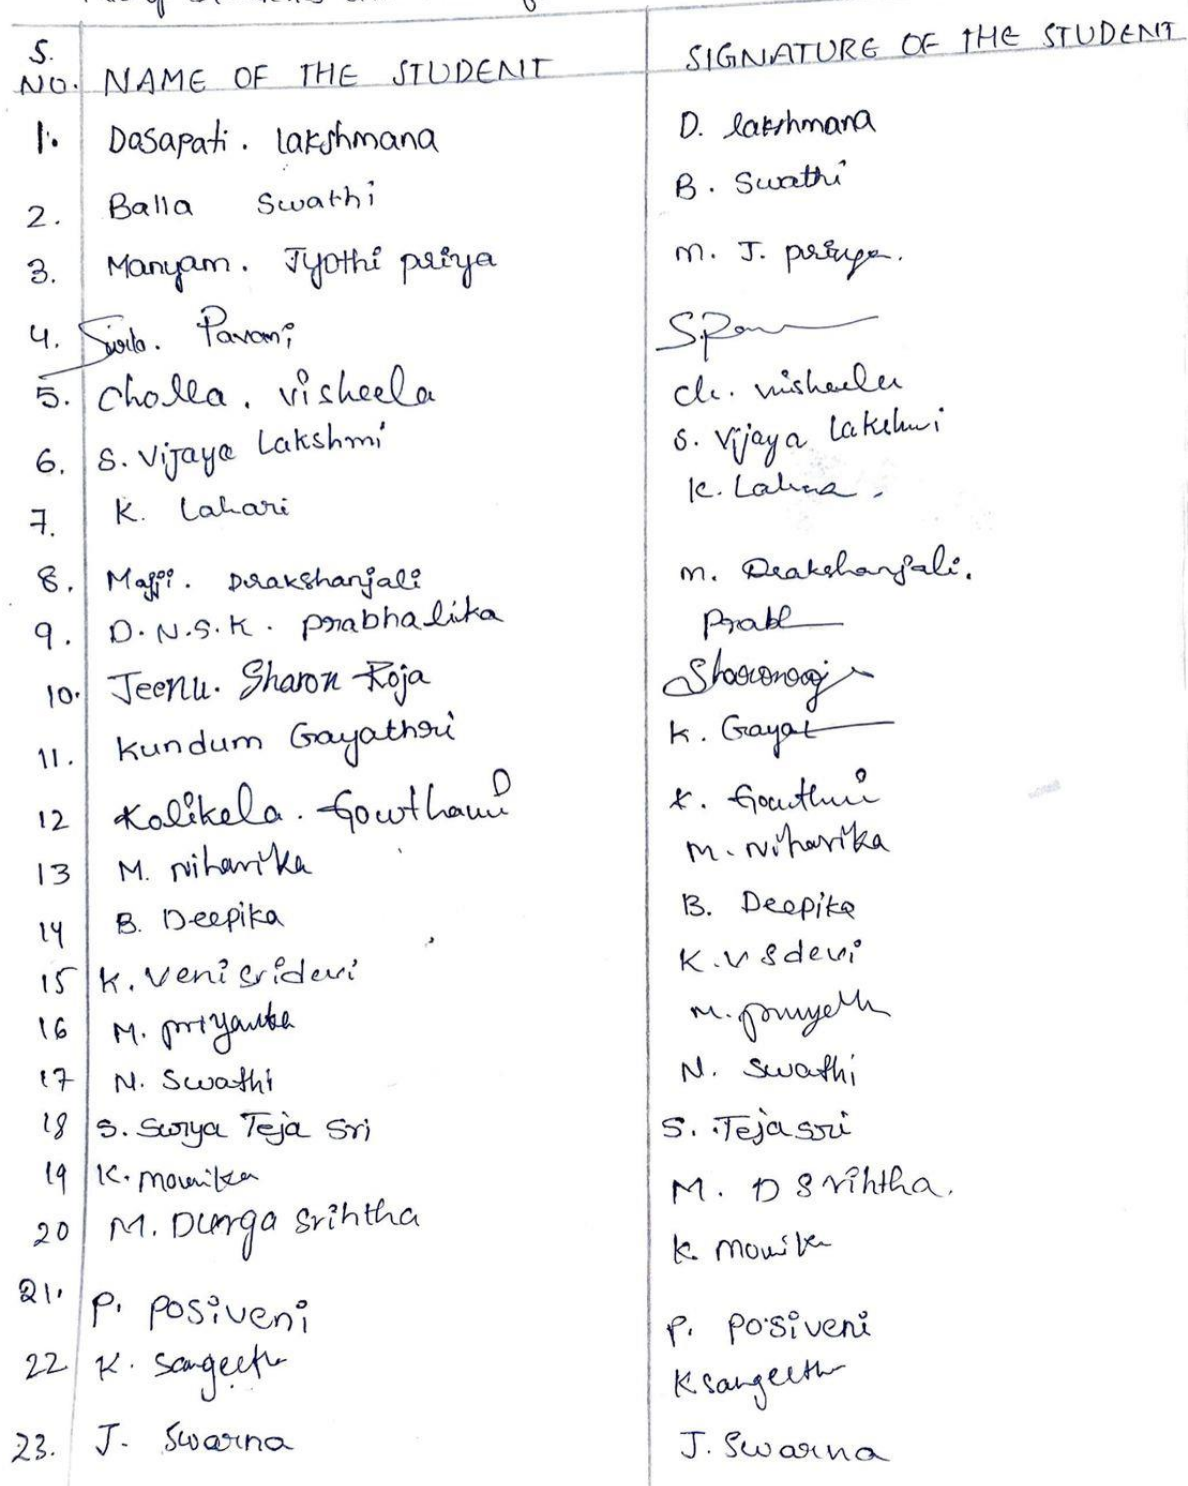 S.
NO. NAME OF THE STUDENT SIGNATURE OF THE STUDENT
1. Dasapati. lakshmana D. lakshmana
2. Balla Swathi B. Swathi
3. Manyam. Jyothi priya M. J. priya.
4. Pavani
5. Cholla. visheela ch. visheela
6. S. Vijaya Lakshmi S. Vijaya Lakshmi
7. K. Lahari K. Lahari.
8. Majji. Drakshanjali M. Drakshanjali.
9. D.N.S.K. prabhalika Prabh
10. Jeenu. Sharon Roja
11. Kundum Gayathri K. Gayat
12 Kolikela. Gowthami K. Gowthmi
13 M. Niharika M. Niharika
14 B. Deepika B. Deepika
15 K. Veni Sridevi K.V Sdevi
16 M. priyanka M.
17 N. Swathi N. Swathi
18 S. Surya Teja Sri S. Teja Sri
19 K. mounika M. D Srihtha.
20 M. Durga Srihtha K. Mounika
21. P. Posiveni P. Posiveni
22 K. Sangeeth K Sangeeth
23. J. Swarna J. Swarna